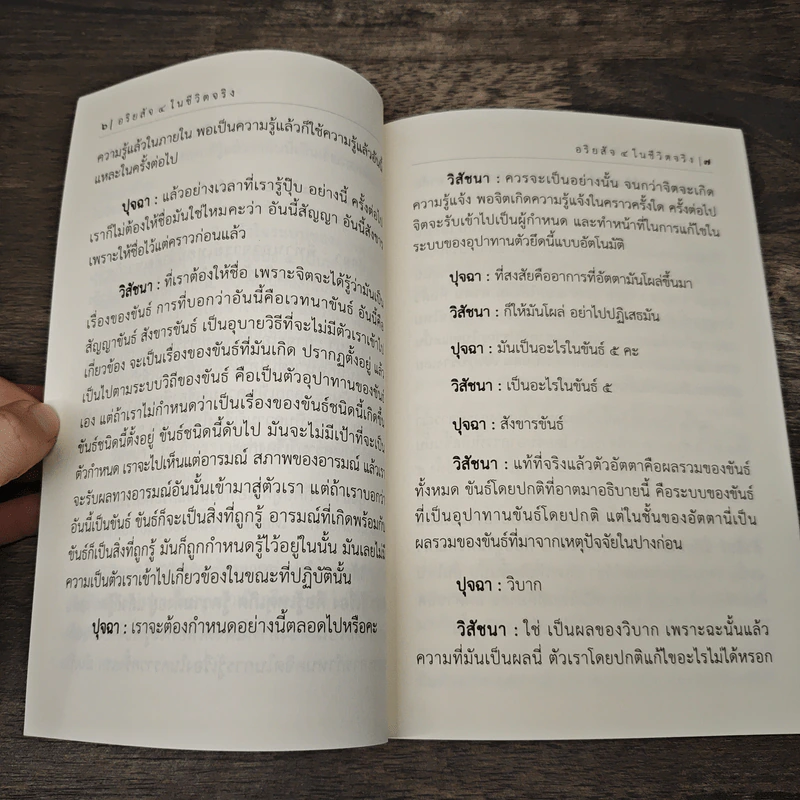 ๖ | อริยสัจ ๔ ในชีวิตจริง
ความรู้แล้วในภายใน พอเป็นความรู้แล้วก็ใช้ความรู้แล้วอันนี้
แหละในครั้งต่อไป
ปุจฉา : แล้วอย่างเวลาที่เรารู้ปุ๊บ อย่างนี้ ครั้งต่อไป
เราก็ไม่ต้องให้ชื่อมันใช่ไหมคะว่า อันนี้สัญญา อันนี้สังขาร
เพราะให้ชื่อไว้แต่คราวก่อนแล้ว
วิสัชนา : ที่เราต้องให้ชื่อ เพราะจิตจะได้รู้ว่ามันเป็น
เรื่องของขันธ์ การที่บอกว่าอันนี้คือเวทนาขันธ์ อันนี้คือ
สัญญาขันธ์ สังขารขันธ์ เป็นอุบายวิธีที่จะไม่มีตัวเราเข้าไป
เกี่ยวข้อง จะเป็นเรื่องของขันธ์ที่มันเกิด ปรากฏตั้งอยู่ แล้ว
เป็นไปตามระบบวิถีของขันธ์ คือเป็นตัวอุปาทานของขันธ์
เอง แต่ถ้าเราไม่กำหนดว่าเป็นเรื่องของขันธ์ชนิดนี้เกิดขึ้น
ขันธ์ชนิดนี้ตั้งอยู่ ขันธ์ชนิดนี้ดับไป มันจะไม่มีเป้าที่จะเป็น
ตัวกำหนด เราจะไปเห็นแต่อารมณ์ สภาพของอารมณ์ แล้วเรา
จะรับผลทางอารมณ์อันนั้นเข้ามาสู่ตัวเรา แต่ถ้าเราบอกว่า
อันนี้เป็นขันธ์ ขันธ์ก็จะเป็นสิ่งที่ถูกรู้ อารมณ์ที่เกิดพร้อมกับ
ขันธ์ก็เป็นสิ่งที่ถูกรู้ มันก็ถูกกำหนดรู้ไว้อยู่ในนั้น มันเลยไม่มี
ความเป็นตัวเราเข้าไปเกี่ยวข้องในขณะที่ปฏิบัตินั้น
ปุจฉา : เราจะต้องกำหนดอย่างนี้ตลอดไปหรือคะ
อริยสัจ ๔ ในชีวิตจริง | ๗
วิสัชนา : ควรจะเป็นอย่างนั้น จนกว่าจิตจะเกิด
ความรู้แจ้ง พอจิตเกิดความรู้แจ้งในคราวครั้งใด ครั้งต่อไป
จิตจะรับเข้าไปเป็นผู้กำหนด และทำหน้าที่ในการแก้ไขใน
ระบบของอุปาทานตัวยึดนี้แบบอัตโนมัติ
ปุจฉา : ที่สงสัยคืออาการที่อัตตามันโผล่ขึ้นมา
วิสัชนา : ก็ให้มันโผล่ อย่าไปปฏิเสธมัน
ปุจฉา : มันเป็นอะไรในขันธ์ ๕ คะ
วิสัชนา : เป็นอะไรในขันธ์ ๕
ปุจฉา : สังขารขันธ์
วิสัชนา : แท้ที่จริงแล้วตัวอัตตาคือผลรวมของขันธ์
ทั้งหมด ขันธ์โดยปกติที่อาตมาอธิบายนี้ คือระบบของขันธ์
ที่เป็นอุปาทานขันธ์โดยปกติ แต่ในชั้นของอัตตานี่เป็น
ผลรวมของขันธ์ที่มาจากเหตุปัจจัยในปางก่อน
ปุจฉา : วิบาก
วิสัชนา : ใช่ เป็นผลของวิบาก เพราะฉะนั้นแล้ว
ความที่มันเป็นผลนี่ ตัวเราโดยปกติแก้ไขอะไรไม่ได้หรอก